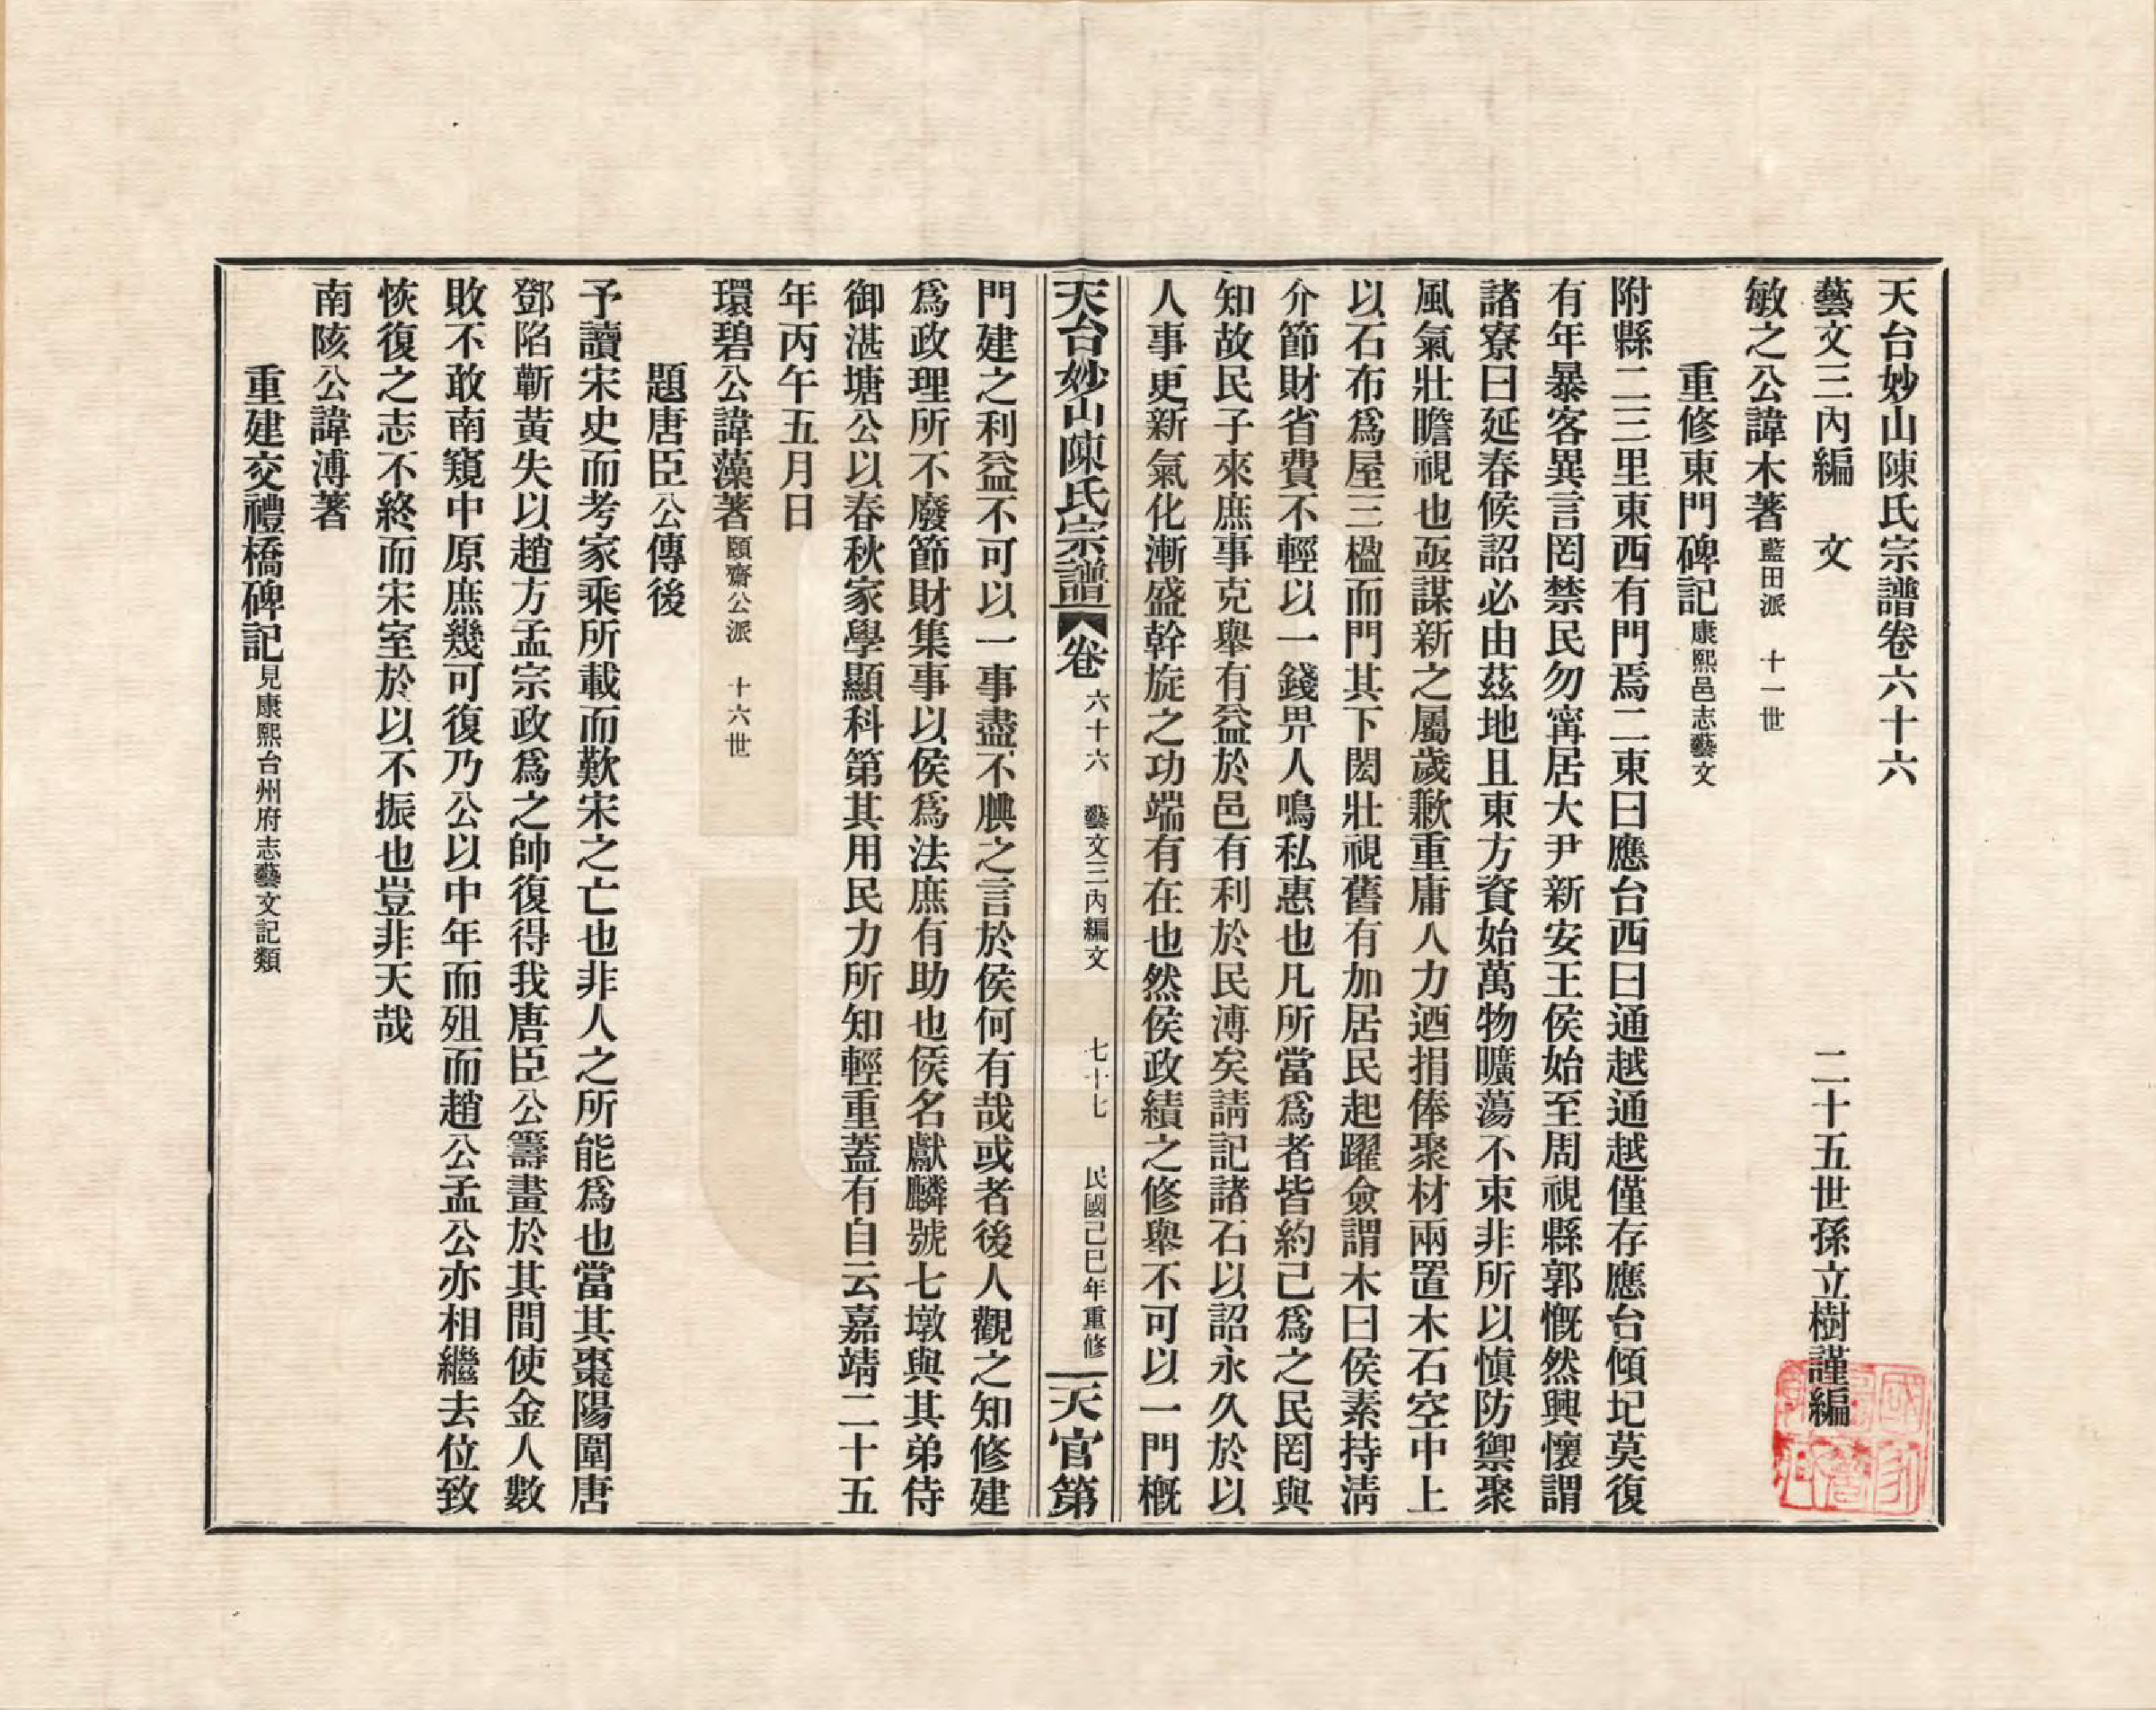 天台妙山陳氏宗譜卷六十六
藝文三內編　文　二十五世孫立樹謹編
敏之公諱木著藍田派　十一世
重修東門碑記康熙邑志藝文
附縣二三里東西有門焉二東曰應台西曰通越通越僅存應台傾圮莫復
有年暴客異言罔禁民勿寗居大尹新安王侯始至周視縣郭慨然興懷謂
諸寮曰延春候詔必由茲地且東方資始萬物曠蕩不束非所以慎防禦聚
風氣壯瞻視也亟謀新之屬歲歉重庸人力迺捐俸聚材兩置木石空中上
以石布爲屋三楹而門其下閎壯視舊有加居民起躍僉謂木曰侯素持清
介節財省費不輕以一錢畀人鳴私惠也凡所當爲者皆約己爲之民罔與
知故民子來庶事克舉有益於邑有利於民溥矣請記諸石以詔永久於以
人事更新氣化漸盛幹旋之功端有在也然侯政績之修舉不可以一門概
天台妙山陳氏宗譜　卷六十六　藝文三內編文　七十七　民國己巳年重修　天官第
門建之利益不可以一事盡不腆之言於侯何有哉或者後人觀之知修建
爲政理所不廢節財集事以侯爲法庶有助也侯名獻麟號七墩與其弟侍
御湛塘公以春秋家學顯科第其用民力所知輕重蓋有自云嘉靖二十五
年丙午五月日
環碧公諱藻著頤齋公派　十六世
題唐臣公傳後
予讀宋史而考家乘所載而歎宋之亡也非人之所能爲也當其棗陽圍唐
鄧陷蘄黃失以趙方孟宗政爲之帥復得我唐臣公籌畫於其間使金人數
敗不敢南窺中原庶幾可復乃公以中年而殂而趙公孟公亦相繼去位致
恢復之志不終而宋室於以不振也豈非天哉
南陔公諱溥著
重建交禮橋碑記見康熙台州府志藝文記類